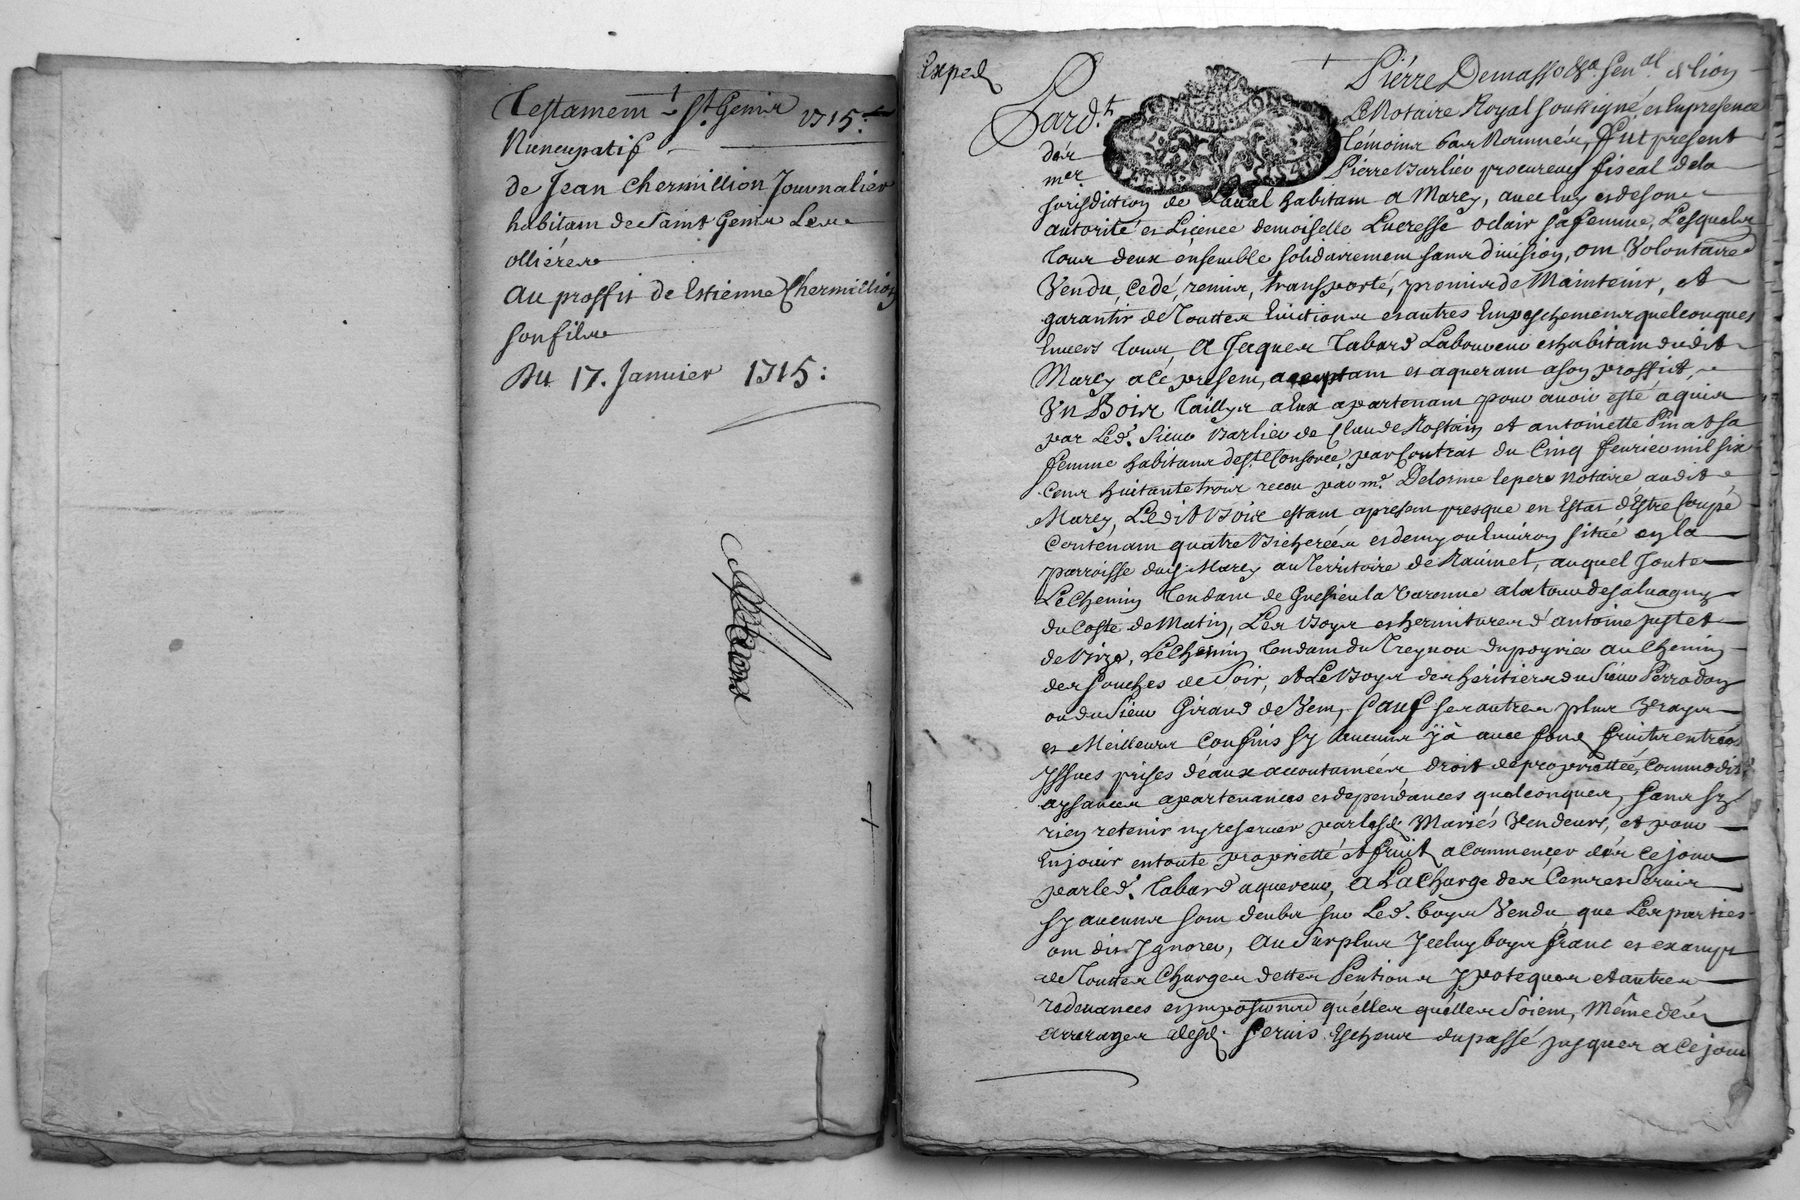 Testament St Genis 1715
Nuncupatif
de Jean Chermillion Journalier
habitam de Saint Genis Les
ollieres
au proffit de Estienne Chermillion
son fils
Du 17. Janvier 1715:
Exped
Pierre Demasso sen.al de lion
Pard.t
Le Notaire Royal soussigné, et En presence
der
témoins bas Nommés, fut present
mer
Pierre Barlieu procureur fiscal de la
Jurisdiction de Laval habitam a Marcy, avec luy et de son
autorité et Licence demoiselle Lucresse oclair sa femme, Lesquels
tous deux ensemble solidairement sans division, om Volontaire
Vendu, cedé, remis, transporté, promis de Maintenir, et
garantir de Touttes Evictions et autres Empeschemens quelconques
Envers tous, a Jaques Tabard Laboureur et habitam dudit
Marcy a ce presem, acceptam et aqueram a son proffict,
Un Bois taillys a Eux apartenam pour avoir esté aquis
par Led.t Sieur Barlieu de Claude Rostaing et antoinette Pinat sa
femme habitans de S.te Consorce, par Contrat du Cinq fevrier mil six
cens huitante trois receu par m.e Delorme le pere Notaire audit
Marcy, Ledit Bois estam a presem presque en Estat d'Estre Coupé
Contenam quatre Bicherées et demy ou Environ situé en la
parroisse dud. Marcy au Territoire de Raimet, auquel Joute
Le Chemin Tendam de Gresieu la Varenne a la tour de salvagny
du Coste de Matin, Les Boys et hermitures d'antoine justet
de Bize, Le Chemin Tendam du Treynou du poyrie au Chemin
des souches de Soir, et Le Boys des heritiers du Sieur Perrodon
ou du Sieur Giraud de Vem, sauf ses autres plus Vrays
et Meilleurs Confins sy aucuns y a avec fons fruits entrées
Yssues prises d'eaux accoutumées, droit de proprietteé, Commodit.
aysances apartenances et dependances quelconques, sans sy
rien retenir ny reserver par lesd. Mariés Vendeurs, et pour
En jouir en toute proprietté et fruit a commencer dès ce jour
par led.t Tabard aquereur, a La Charge des Cens et Servis
sy aucuns som deubs sur Led. boys Vendu que Les parties
om dit Ignorer, au Surplus Jceluy boys franc et exampt
de Touttes Charges dettes Pentions Ypoteques et autres
redevances et impositions quelles quelles Soiem, Même des
arrerages desd. servis Escheus du passé jusques a ce jour